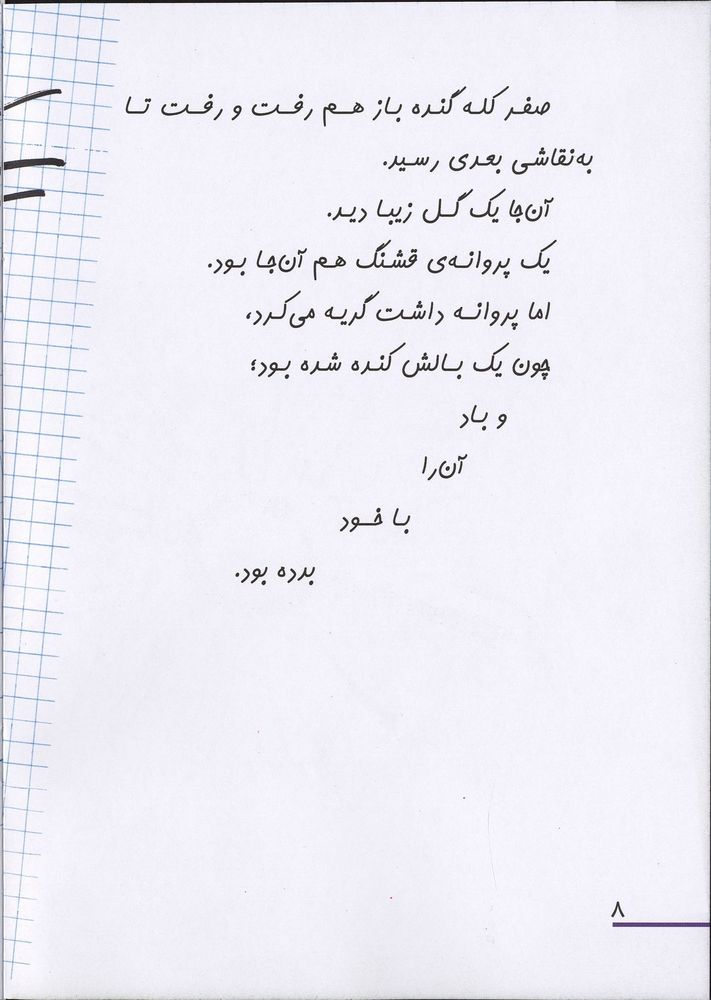 صفر کله گنده باز هم رفت و رفت تا
به‌نقاشی بعدی رسید.
آن‌جا یک گل زیبا دید.
یک پروانه‌ی قشنگ هم آن‌جا بود.
اما پروانه داشت گریه می‌کرد،
چون یک بالش کنده شده بود؛
و باد
آن‌را
با خود
برده بود.
۸